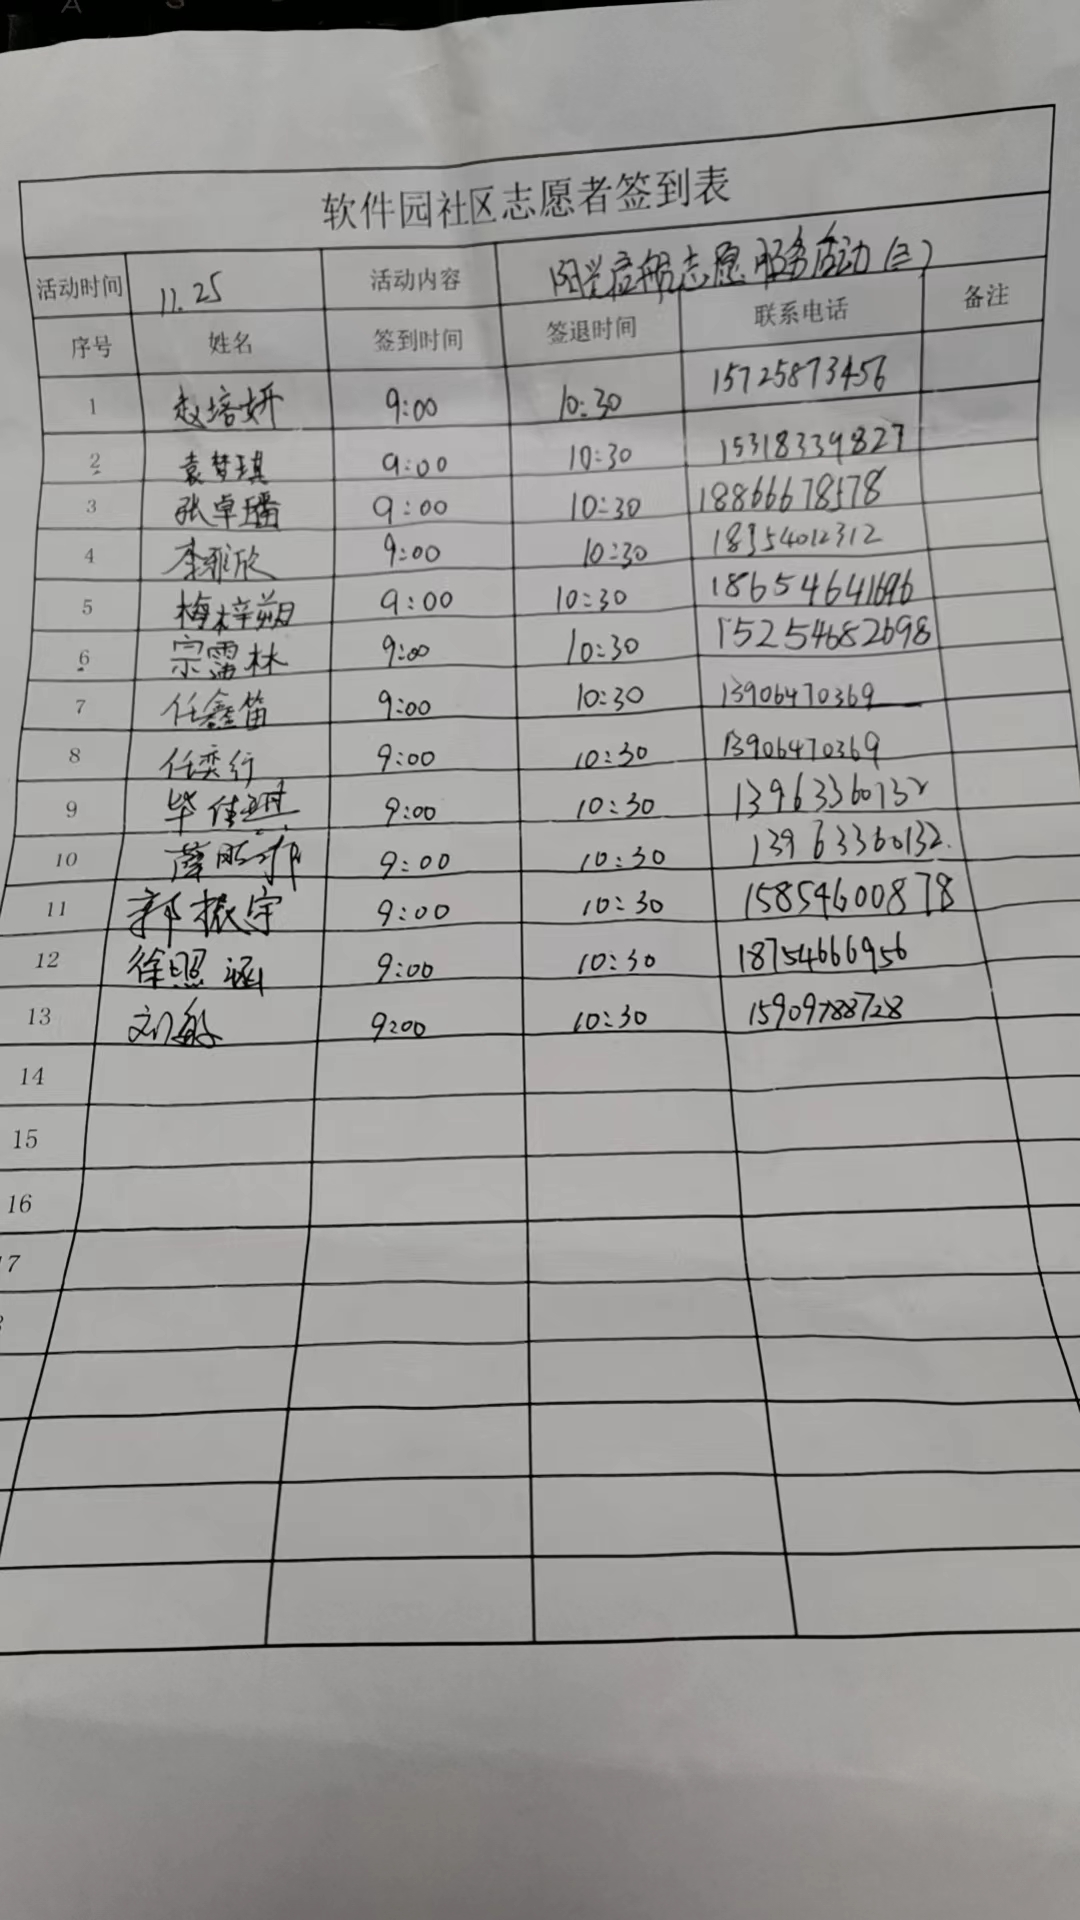 软件园社区志愿者签到表
活动时间 11.25 活动内容 阳光启航志愿服务活动(三)
序号 姓名 签到时间 签退时间 联系电话 备注
1 赵培妍 9:00 10:30 15725873456
2 袁梦琪 9:00 10:30 15318334827
3 张卓璠 9:00 10:30 18866678578
4 李雅欣 9:00 10:30 18354012312
5 梅梓朔 9:00 10:30 18654641696
6 宗雷林 9:00 10:30 15254682698
7 任鑫笛 9:00 10:30 13906470369
8 任奕行 9:00 10:30 13906470369
9 毕佳 9:00 10:30 13963360132
10 9:00 10:30 13963360132.
11 郭振宇 9:00 10:30 15854600878
12 徐照涵 9:00 10:30 18754666956
13 刘敏 9:00 10:30 15909788728
14
15
16
7